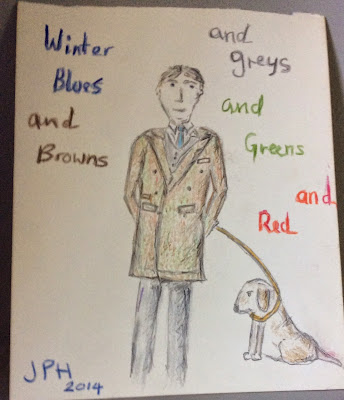 Winter
Blues
and
Browns
and
greys
and
Greens
and
Red
JPH
2014